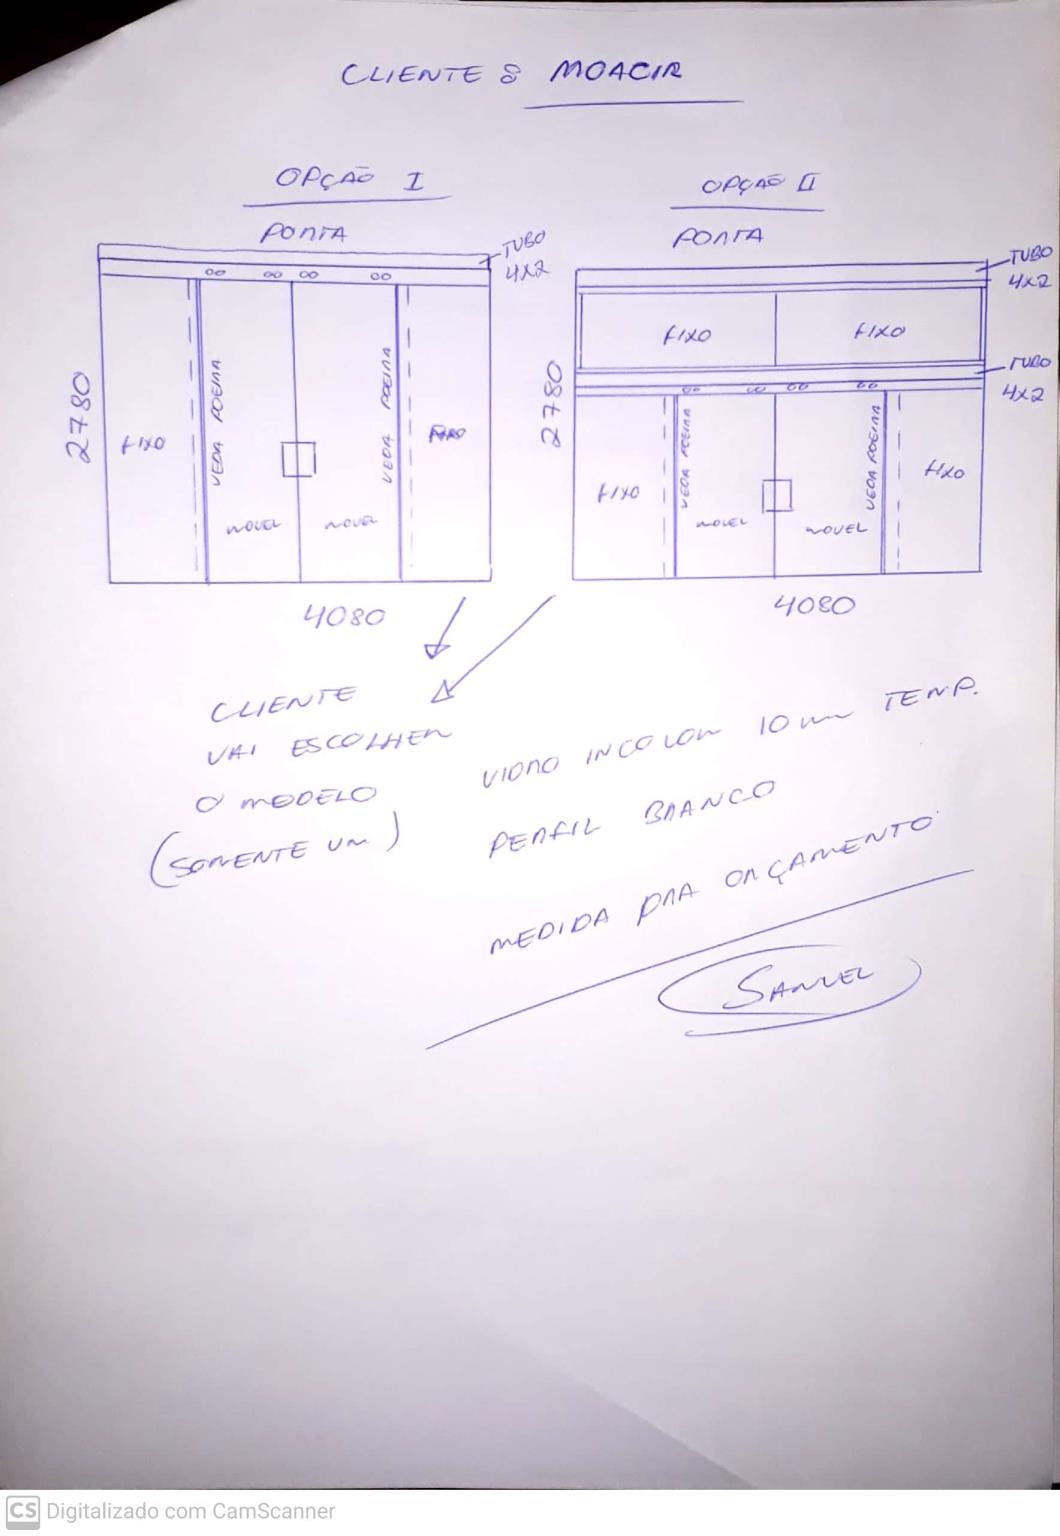 CLIENTE : MOACIR
OPÇÃO I
PORTA
TUBO
4X2
2780
FIXO
VEDA POEIRA
VEDA POEIRA
FIXO
MOVEL
MOVEL
4080
OPÇÃO II
PORTA
TUBO
4X2
FIXO
FIXO
TUBO
4X2
2780
FIXO
VEDA POEIRA
VEDA POEIRA
FIXO
MOVEL
MOVEL
4080
CLIENTE
VAI ESCOLHER
O MODELO
(SOMENTE UM)
VIDRO INCOLOR 10mm TEMP.
PERFIL BRANCO
MEDIDA PRA ORÇAMENTO
SAMUEL
CS Digitalizado com CamScanner